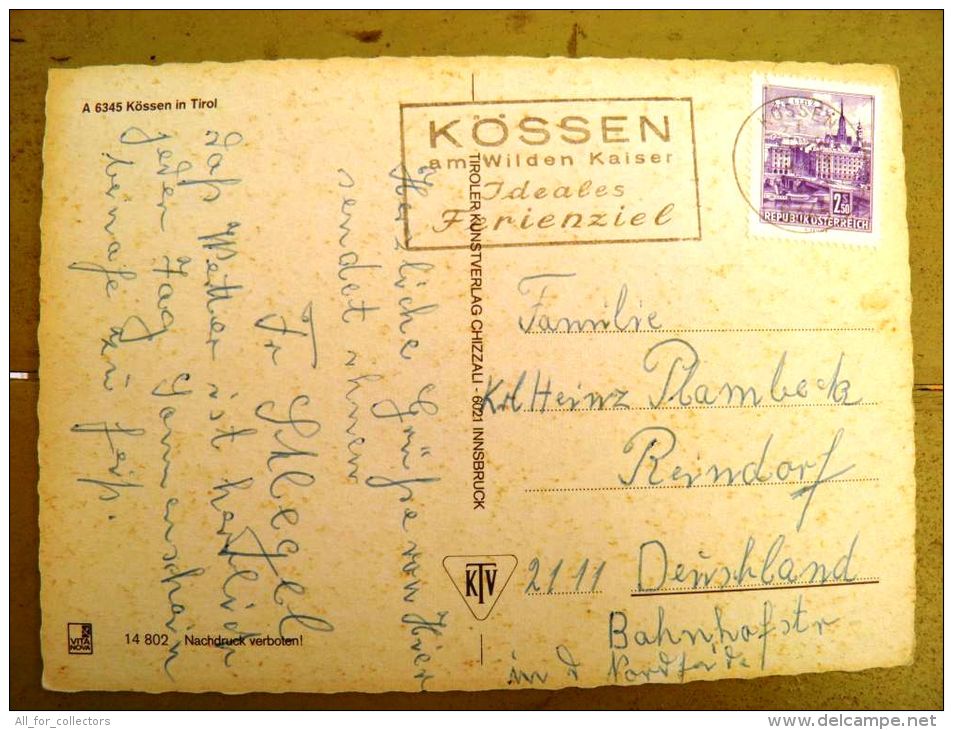 A 6345 Kössen in Tirol
KÖSSEN
am Wilden Kaiser
Ideales
Ferienziel
KÖSSEN
2 S 50
REPUBLIK ÖSTERREICH
Herzliche Grüße von Hier
sendet ihnen
Fr
Das Wetter ist herrlich
jeden Tag Sonnenschein
beinahe zu heiß.
TIROLER KUNSTVERLAG CHIZZALI - 6021 INNSBRUCK
Familie
Krl Heinz Plambeck
Reindorf
2111 Deuschland
Bahnhofstr
in d Nordheide
KTV
VITA
NOVA
14 802 Nachdruck verboten!
All_for_collectors
http://www.delcampe.net